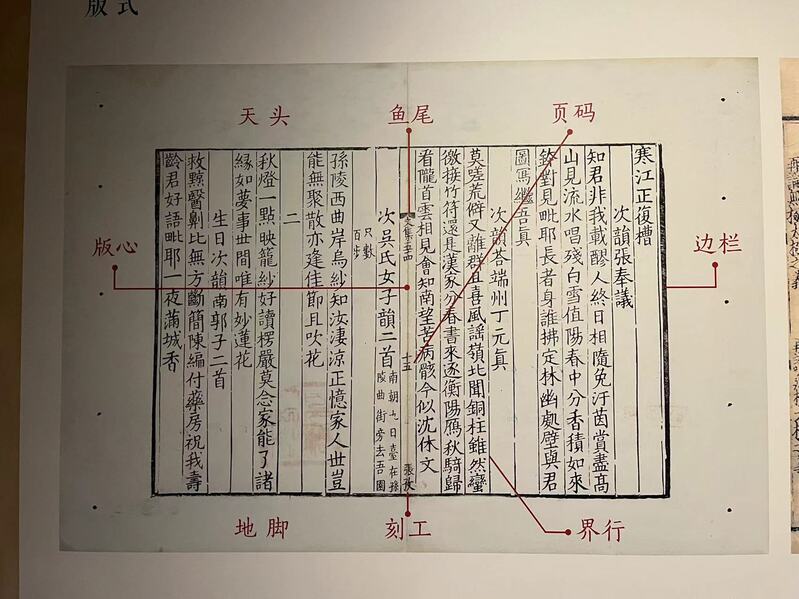 版式
天头
鱼尾
页码
版心
边栏
地脚
刻工
界行
寒江正復槽
次韻張奉議
知君非我載醪人終日相隨免汙茵賞盡高
山見流水唱殘白雪值陽春中分香積如來
鉢對見毗耶長者身誰拂定林幽處壁與君
圖寫繼吾真
次韻荅端州丁元真
莫嗟荒僻又離群且喜風謠嶺北聞銅柱雖然蠻
徼接竹符還是漢家分春書來逐衡陽鴈秋騎歸
看隴首雲相見會知南望苦病骸今似沈休文
文集
十五
張孜
次吳氏女子韻二首
南朝九日臺在孫
陵曲街旁去吾園
尺數
百步
孫陵西曲岸烏紗知汝淒涼正憶家人世豈
能無聚散亦逢佳節且吹花
二
秋燈一點映籠紗好讀楞嚴莫念家能了諸
緣如夢事世間唯有妙蓮花
生日次韻南郭子二首
救黥醫劓比無方斷簡陳編付藥房祝我壽
齡君好語毗耶一夜滿城香